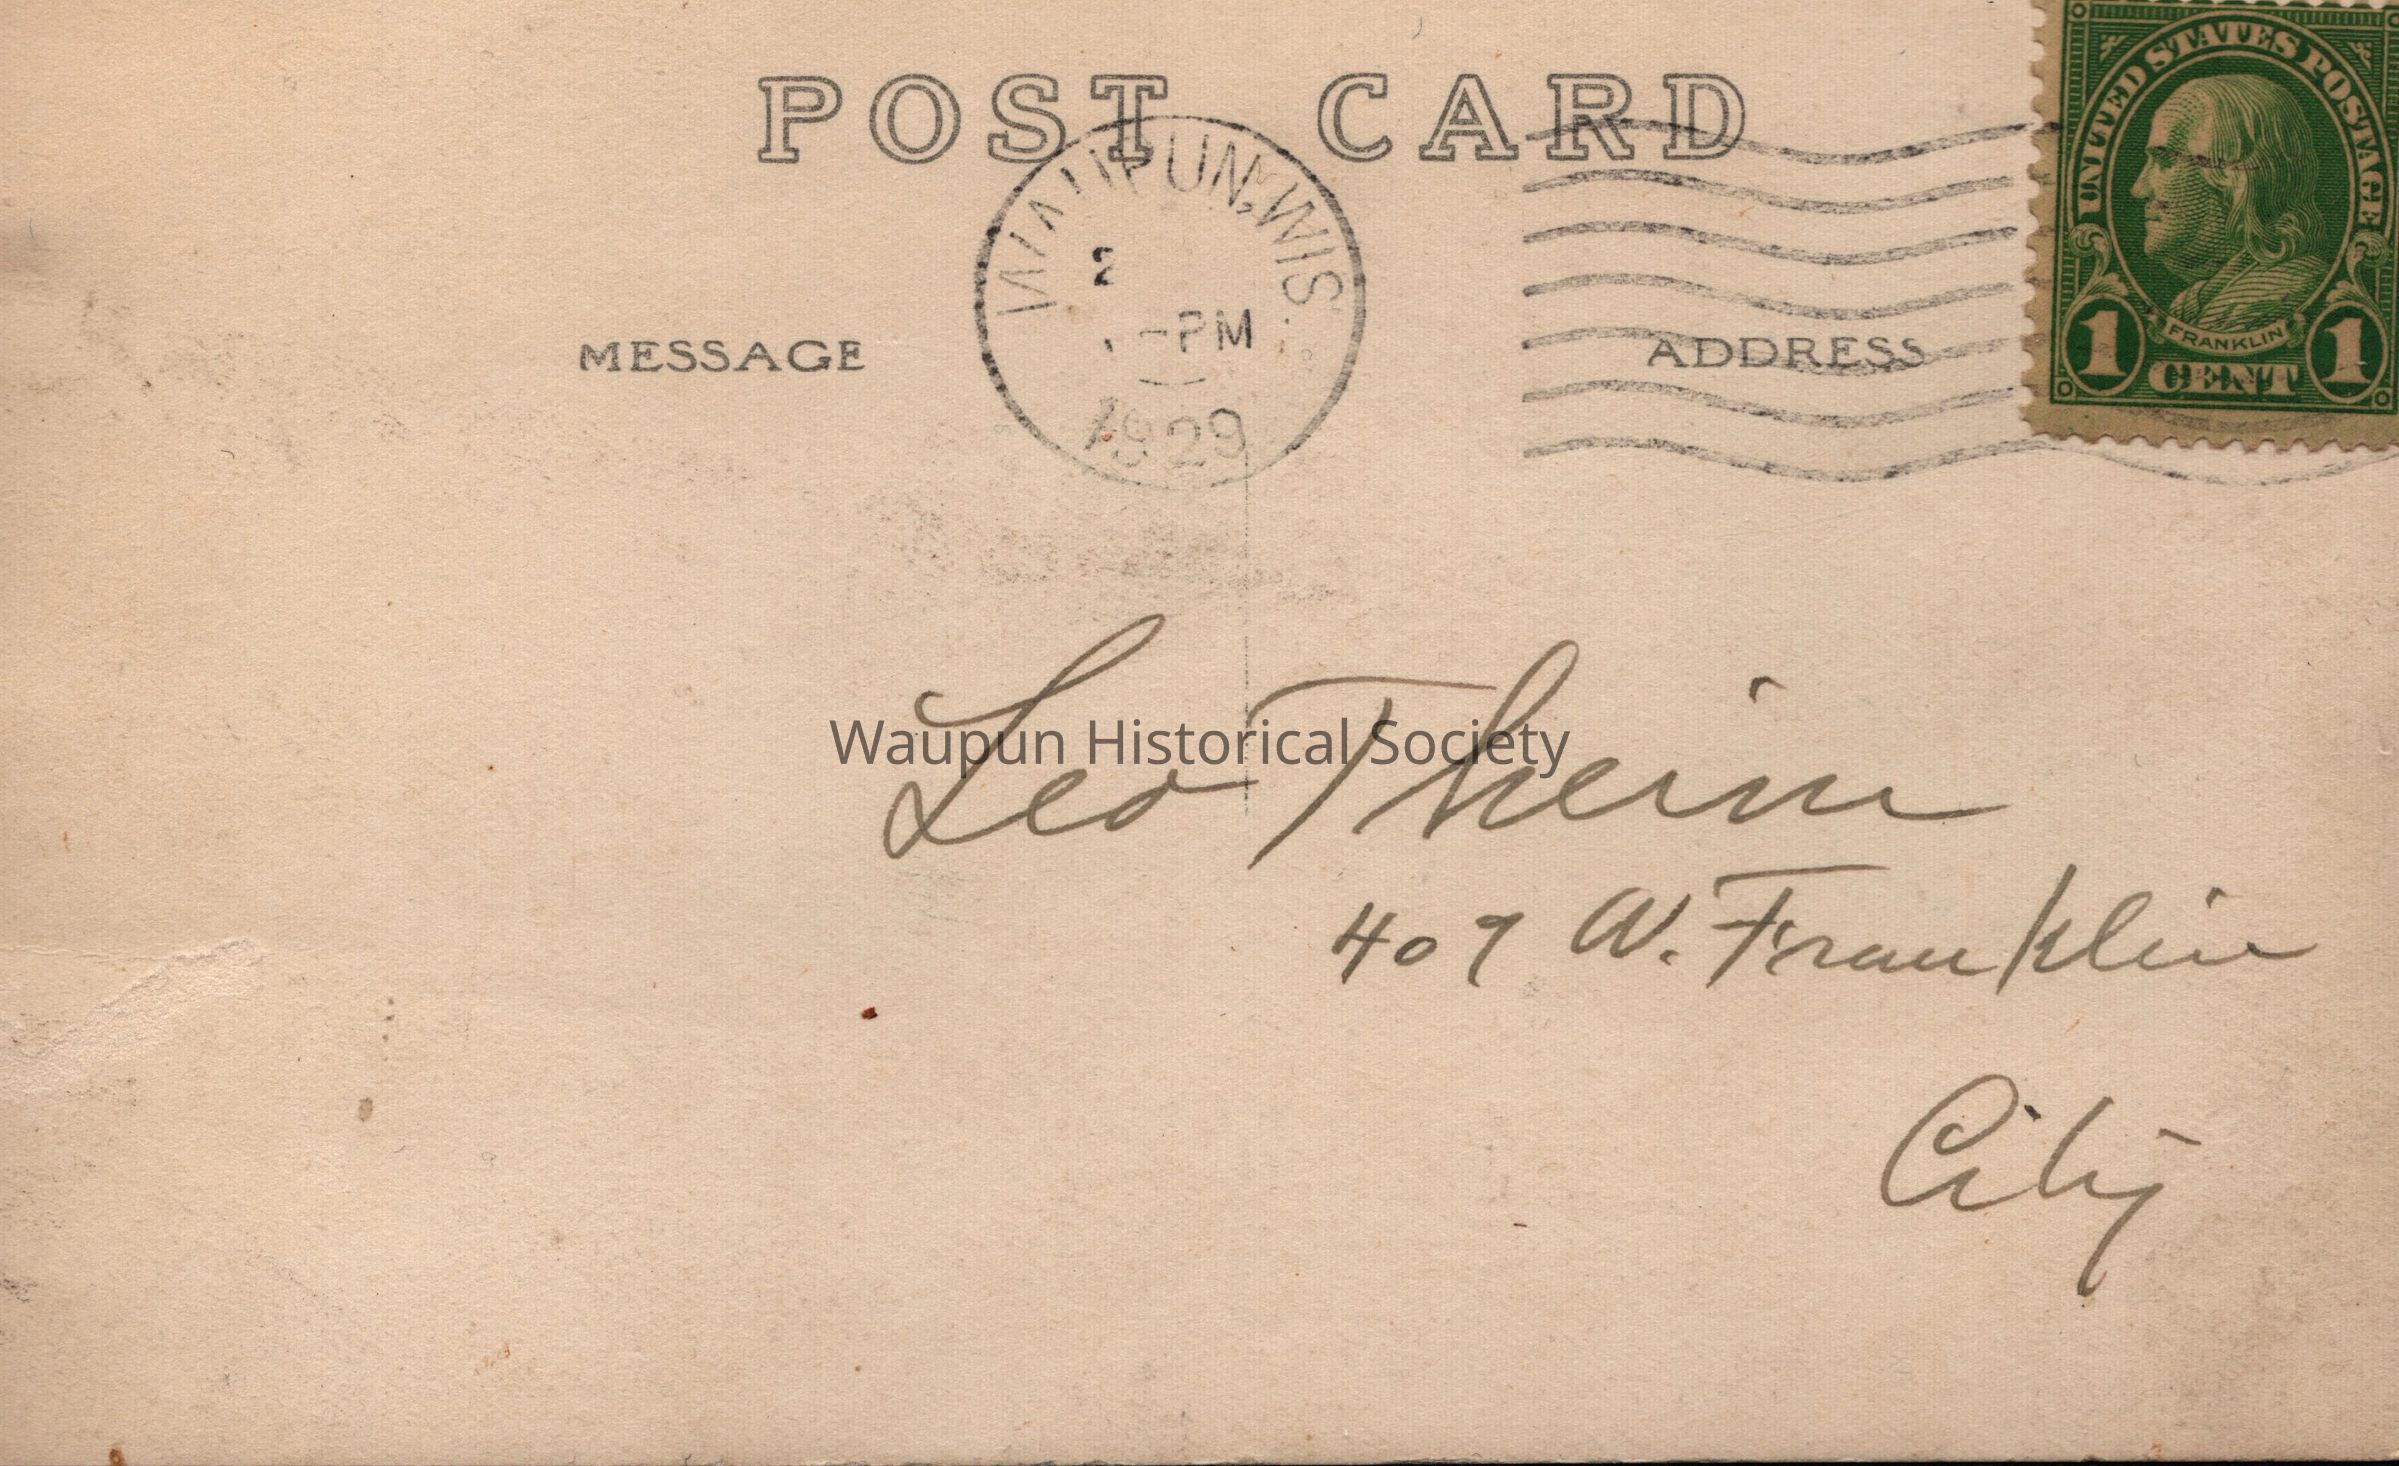 POST CARD
WAUPUN, WIS.
2
-PM
1929
MESSAGE
ADDRESS
UNITED STATES POSTAGE
FRANKLIN
1 CENT 1
Waupun Historical Society
Leo Theim
409 W. Franklin
City